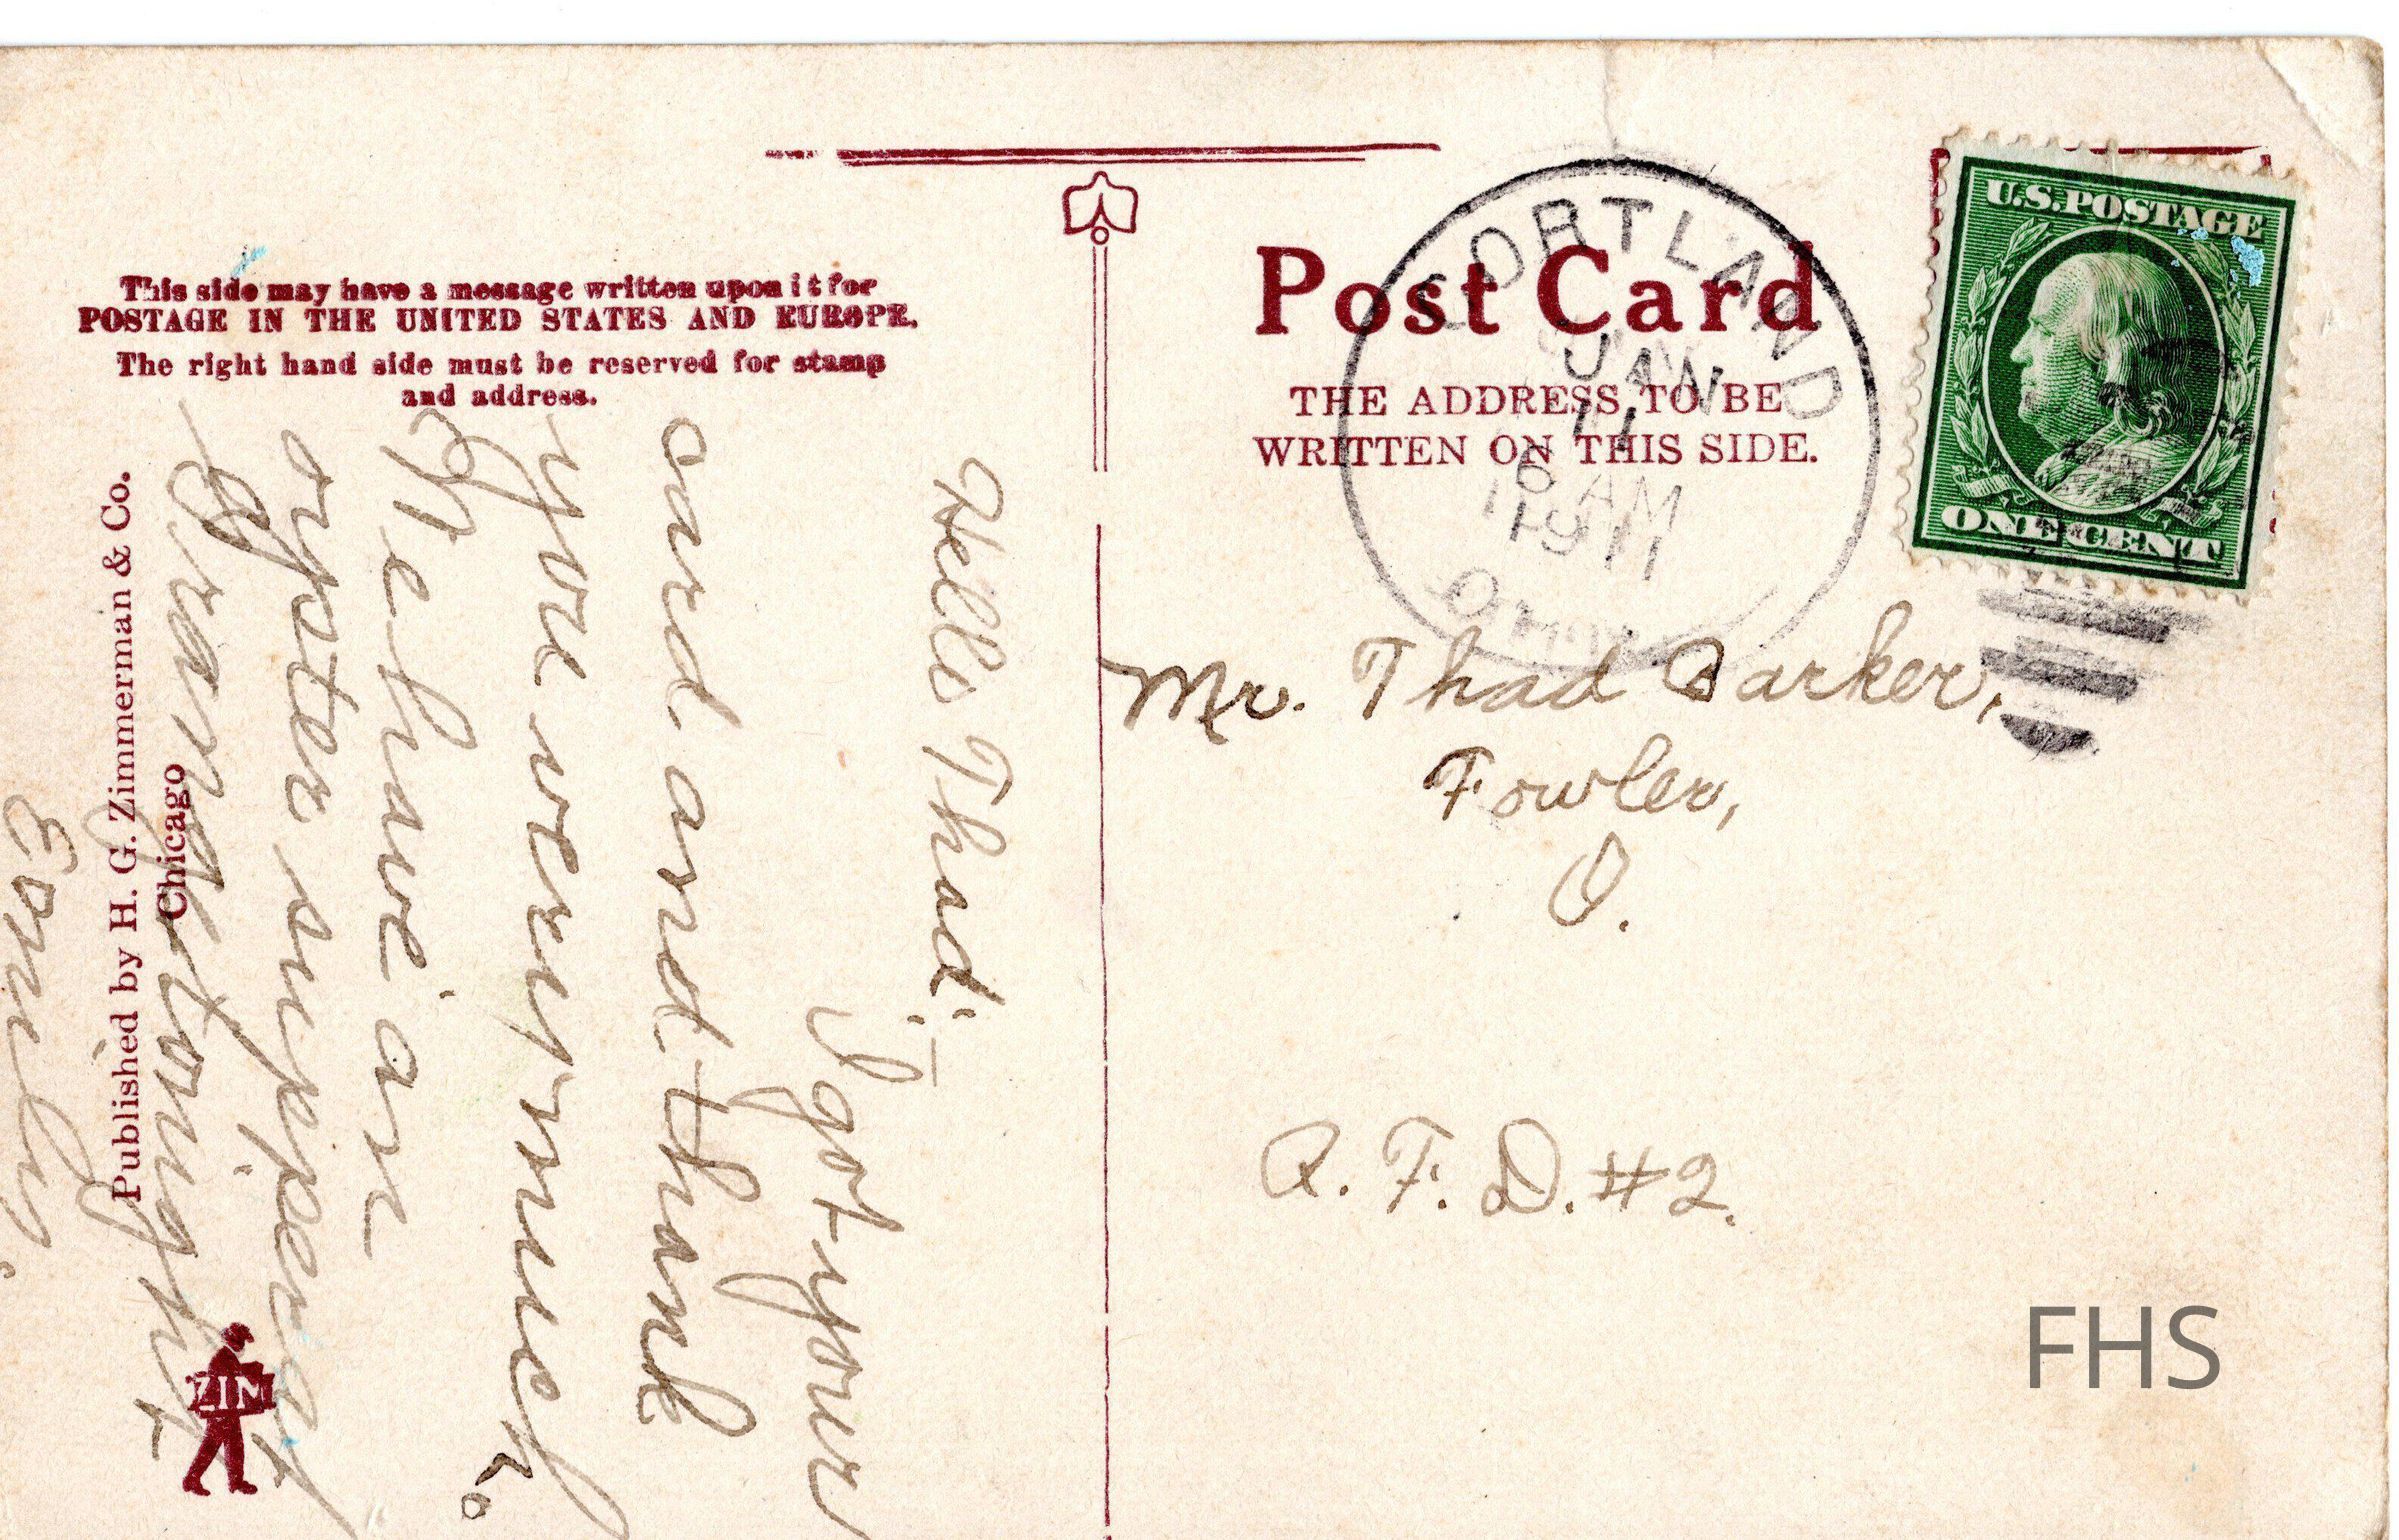 This side may have a message written upon it for
POSTAGE IN THE UNITED STATES AND EUROPE.
The right hand side must be reserved for stamp
and address.
Hello Thad:—
I got your
card and thank
you very much.
We have an
oyster supper at
Grange tonight
Published by H. G. Zimmerman & Co.
Chicago
ZIM
Post Card
THE ADDRESS TO BE
WRITTEN ON THIS SIDE.
CORTLAND
JAN
11
6 AM
1911
OHIO
U.S. POSTAGE
ONE CENT
Mr. Thad Barker,
Fowler,
O.
R. F. D. #2.
FHS